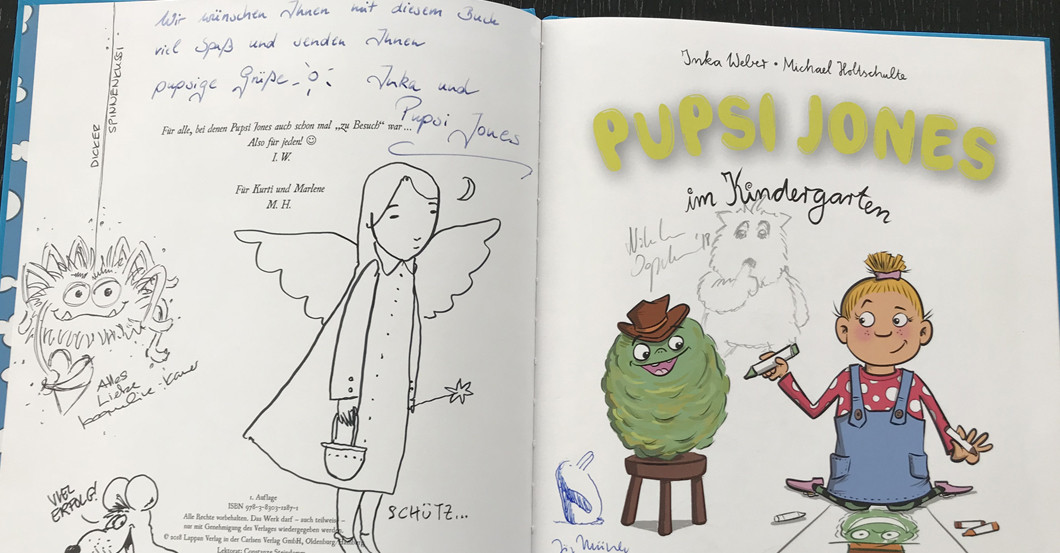 Wir wünschen Ihnen mit diesem Buch
viel Spaß und senden Ihnen
pupsige Grüße Inka und
Pupsi Jones
Für alle, bei denen Pupsi Jones auch schon mal „zu Besuch“ war ...
Also für jeden! ☺
I. W.
Für Kurti und Marlene
M. H.
DICKER
SPINNENKUSS!
Alles
Liebe
VIEL
ERFOLG!
SCHÜTZ...
1. Auflage
ISBN 978-3-8303-1287-1
Alle Rechte vorbehalten. Das Werk darf – auch teilweise –
nur mit Genehmigung des Verlages wiedergegeben werden.
© 2018 Lappan Verlag in der Carlsen Verlag GmbH, Oldenburg/Hamburg
Lektorat: Constanze
Inka Weber • Michael Holtschulte
PUPSI JONES
im Kindergarten
'18